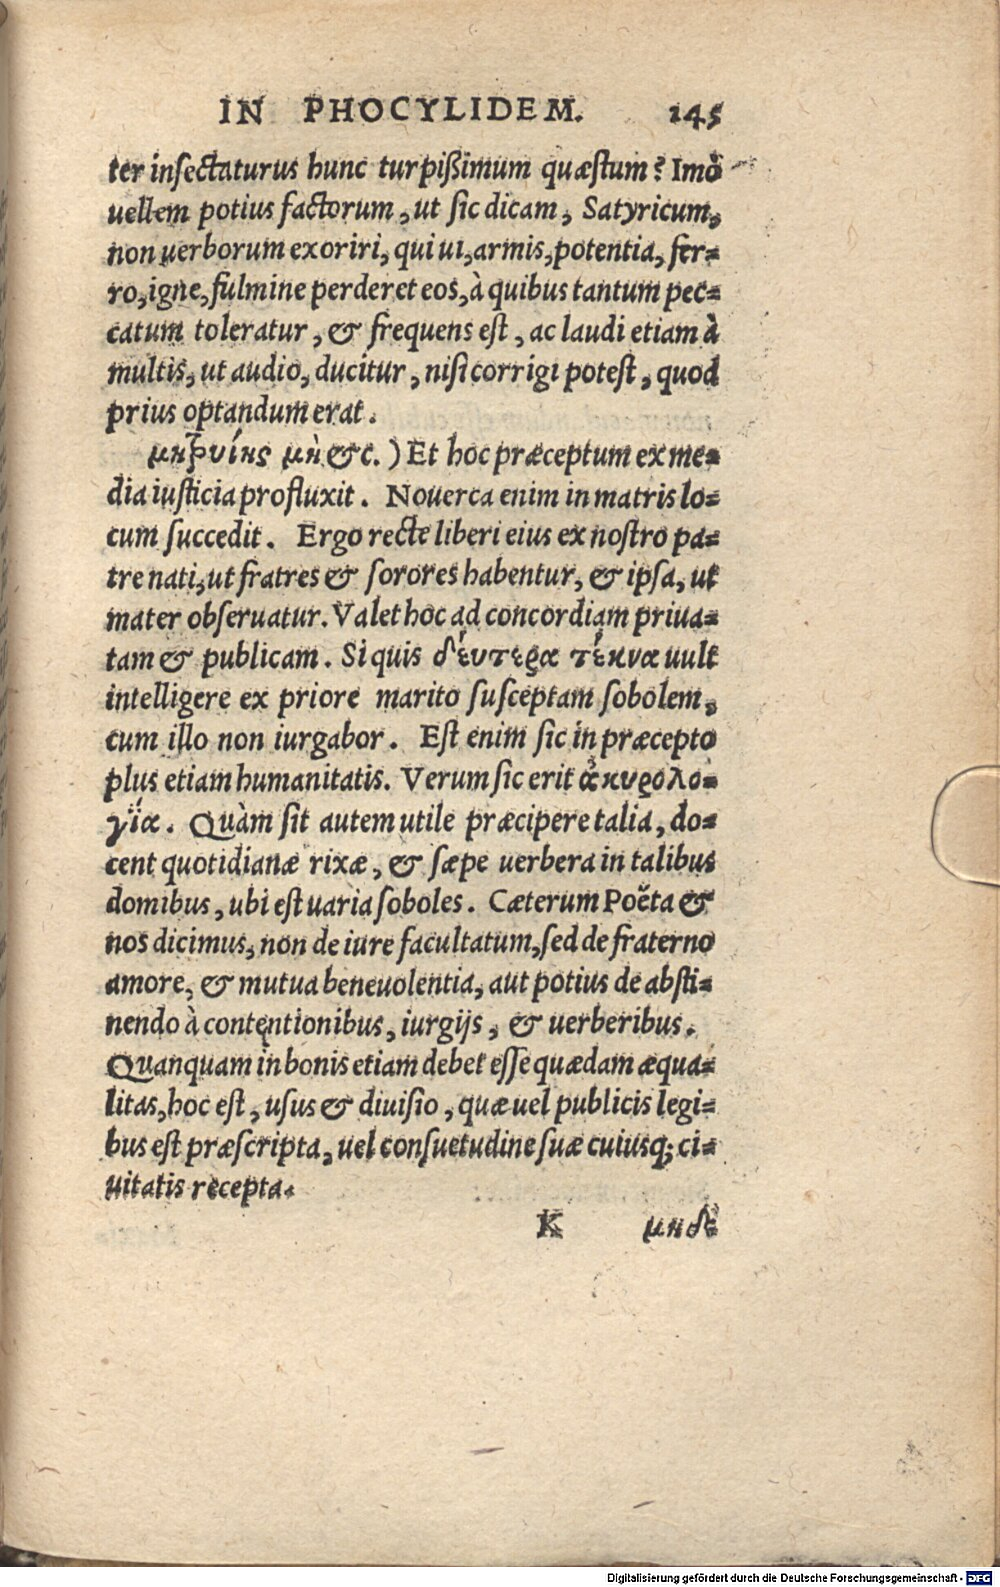 IN PHOCYLIDEM. 145
ter insectaturus hunc turpißimum quæstum? Imò
uellem potius factorum, ut sic dicam, Satyricum,
non uerborum exoriri, qui ui, armis, potentia, fer-
ro, igne, fulmine perderet eos, à quibus tantum pec-
catum toleratur, & frequens est, ac laudi etiam à
multis, ut audio, ducitur, nisi corrigi potest, quod
prius optandum erat.
μητρυίης μὴ &c.) Et hoc præceptum ex me-
dia iusticia profluxit. Nouerca enim in matris lo-
cum succedit. Ergo recte liberi eius ex nostro pa-
tre nati, ut fratres & sorores habentur, & ipsa, ut
mater obseruatur. Valet hoc ad concordiam priua-
tam & publicam. Si quis δεύτερα τέκνα uult
intelligere ex priore marito susceptam sobolem,
cum illo non iurgabor. Est enim sic in præcepto
plus etiam humanitatis. Verum sic erit ἀκυρολο-
γία. Quàm sit autem utile præcipere talia, do-
cent quotidianæ rixæ, & sæpe uerbera in talibus
domibus, ubi est uaria soboles. Cæterum Poëta &
nos dicimus, non de iure facultatum, sed de fraterno
amore, & mutua beneuolentia, aut potius de absti-
nendo à contentionibus, iurgijs, & uerberibus.
Quanquam in bonis etiam debet esse quædam æqua-
litas, hoc est, usus & diuisio, quæ uel publicis legi-
bus est præscripta, uel consuetudine suæ cuiusq; ci-
uitatis recepta.
K μηδὲ
Digitalisierung gefördert durch die Deutsche Forschungsgemeinschaft - DFG